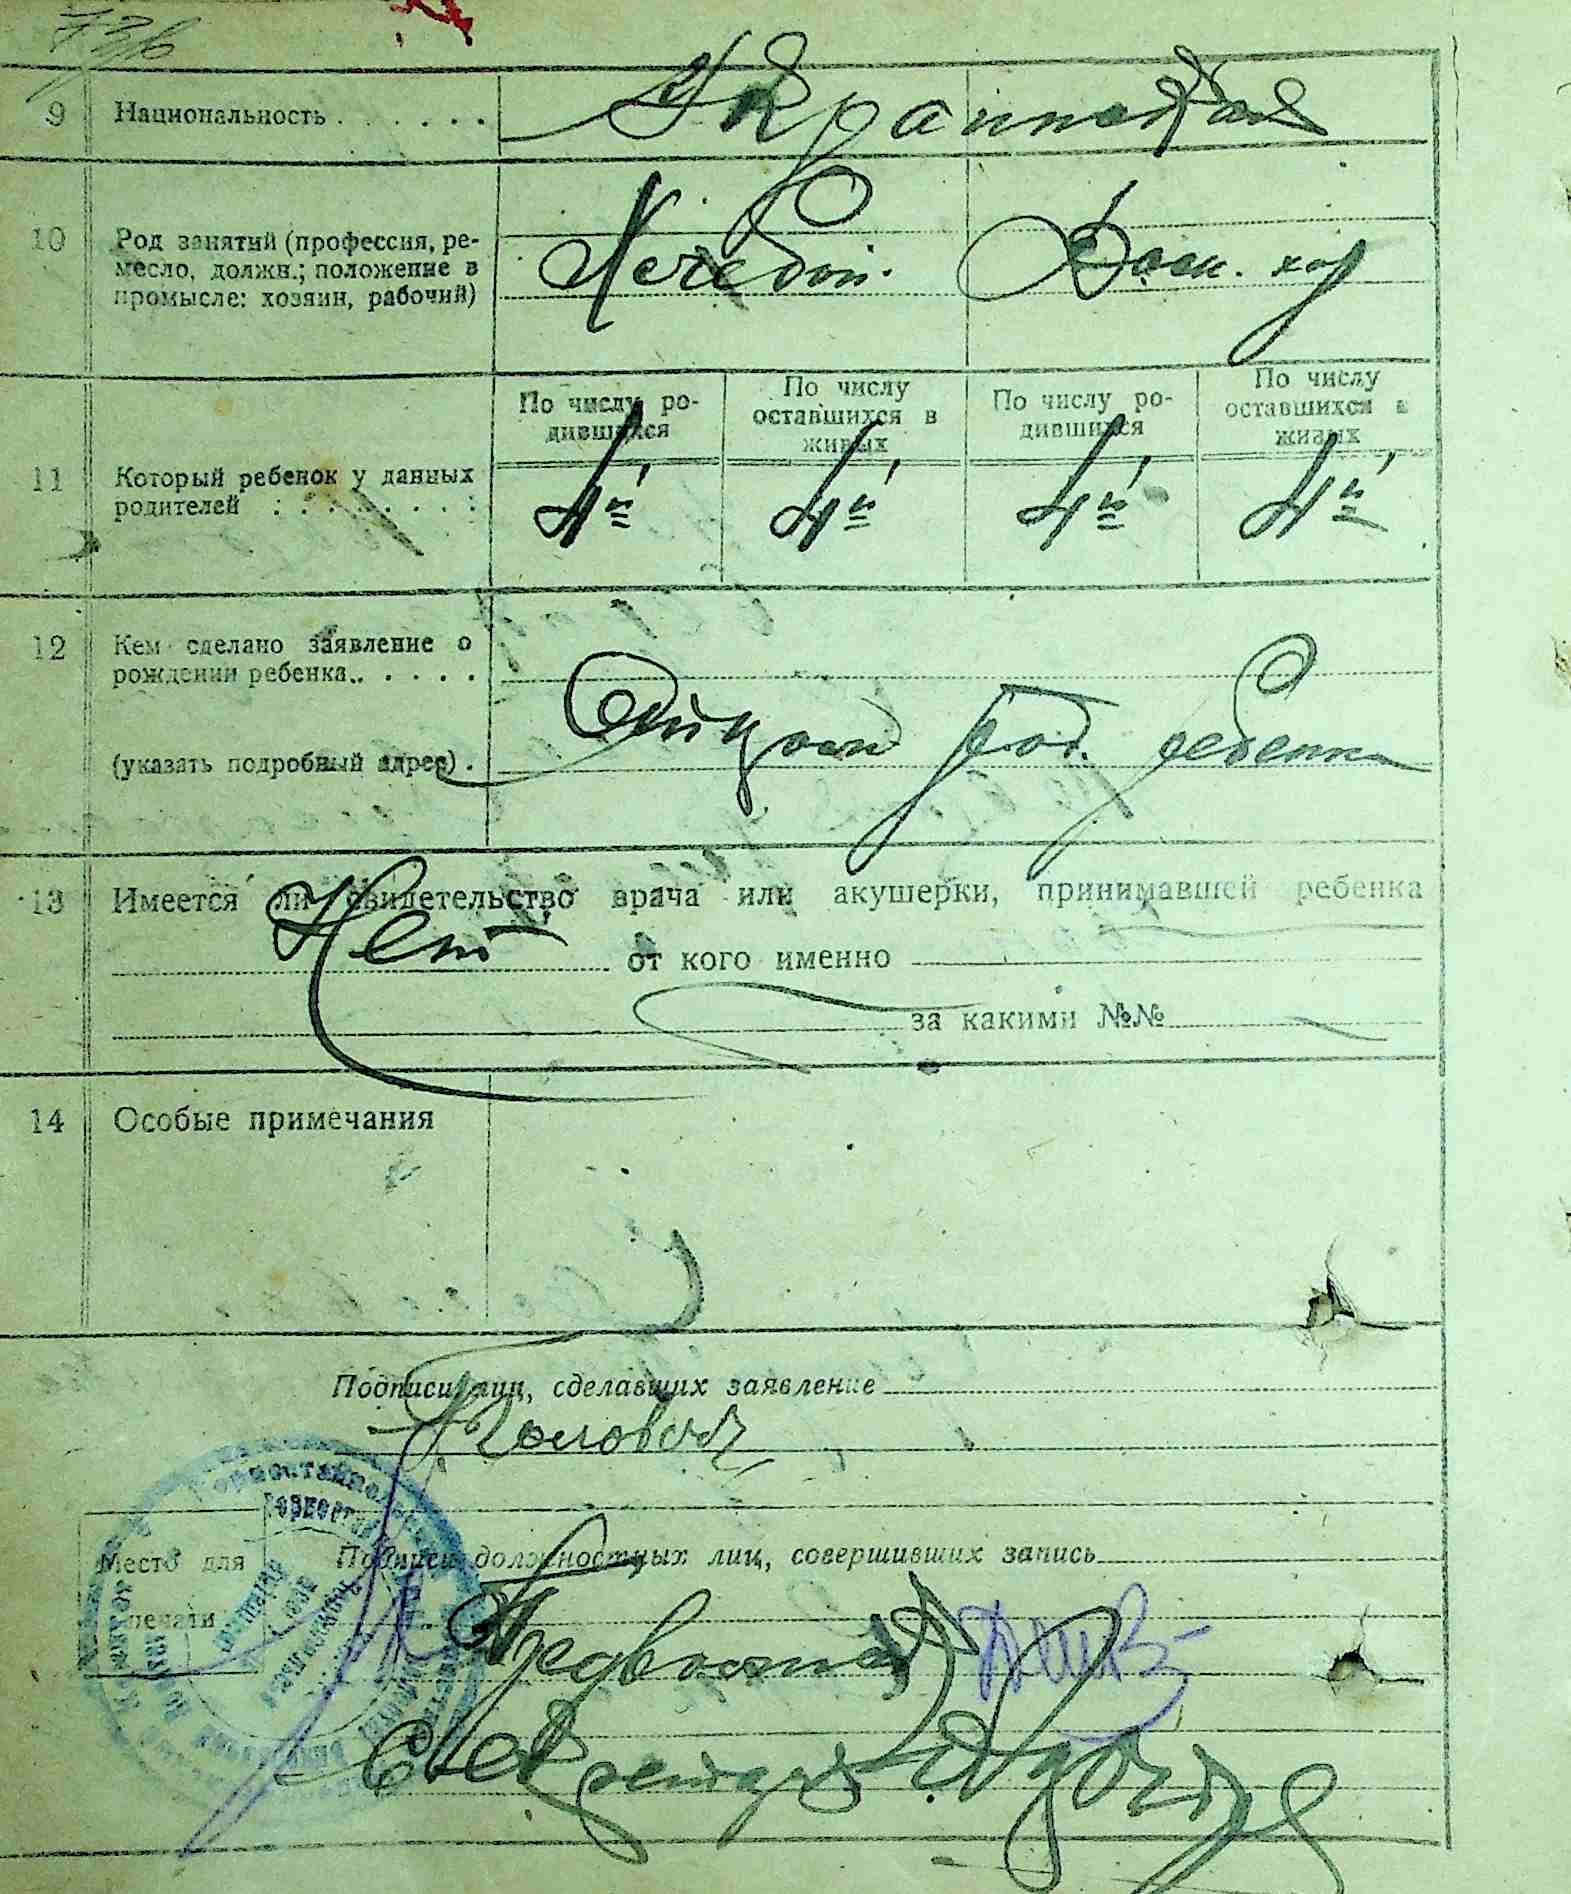 73/6
9 Национальность . . . . . . . Украинская
10 Род занятий (профессия, ре-
месло, должн.; положение в
промысле: хозяин, рабочий)
Хлебоп. Дом. хоз
По числу ро-
дившихся
По числу
оставшихся в
живых
По числу ро-
дившихся
По числу
оставшихся в
живых
11 Который ребенок у данных
родителей : . . . . . . . :
4й 4й 4й 4й
12 Кем сделано заявление о
рождении ребенка . . . . . .
(указать подробный адрес) .
Отцом род. ребенка
13 Имеется ли свидетельство врача или акушерки, принимавшей ребенка
Нет от кого именно
за какими №№
14 Особые примечания
Подписи лиц, сделавших заявление
Подписи должностных лиц, совершивших запись
Место для
печати
Секретарь